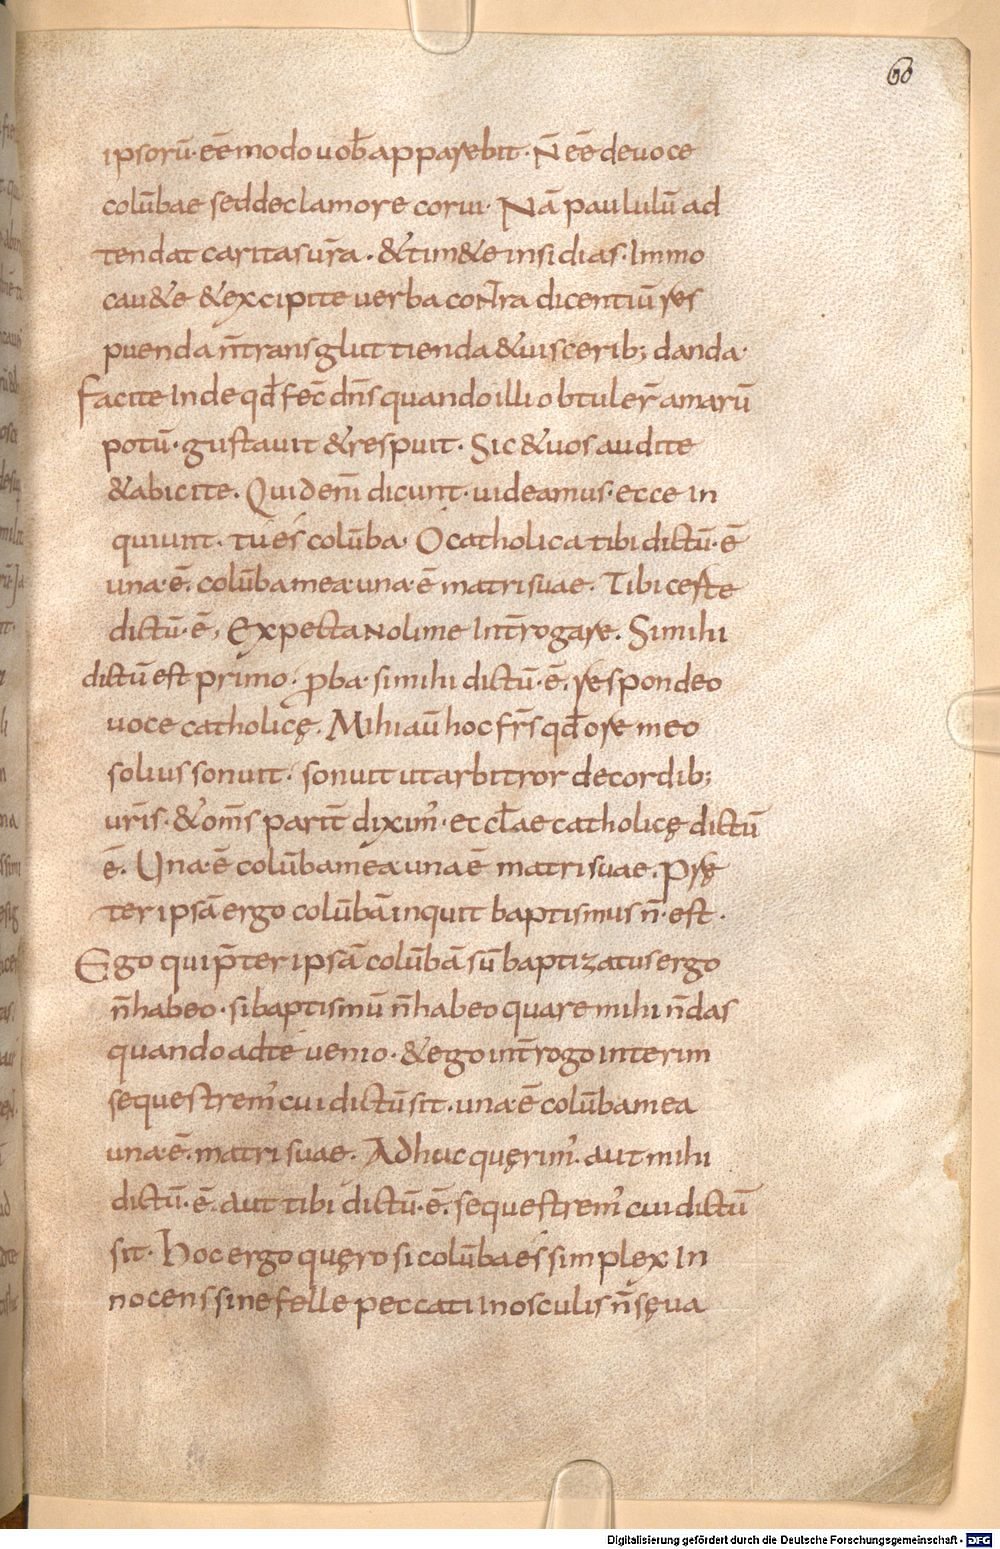 60
ipsorū· eē modo vob̄ apparebit· N̄ eē de voce
colūbae sed de clamore corui· Nā paululū ad
tendat caritas ur̄a· &tim&e insidias· Immo
cau&e &excipite uerba cont̄radicentiū res
puenda n̄ transgluttienda &uiscerib; danda·
facite Inde qd̄ fec̄ dn̄s quando illi obtuler̄ amarū
potū· gustauit &respuit· Sic &uos audite
&abicite· Quid eni̅ dicunt· uideamus· ecce in
quiunt· tu és colūba· O catholica tibi dictū· ē
una· ē· colūba mea· una· ē matri suae· Tibi certe
dictū· ē, Expecta Noli me Int̄rogare· Si mihi
dictū est primo· p̄ba· si mihi dictū· ē· respondeo
uoce catholicę· Mihi aū hoc fr̄s qd̄ ore meo
solius sonuit· sonuit ut arbitror de cordib;
ur̄is· &om̄s parit̄ dixim᾽· eccl̄ae catholicę dictū
ē· Una· ē colūba mea una ē matri suae· Prę
ter ipsā ergo colūbā inquit baptismus n̄· est·
Ego qui p̄ter ipsā colūbā sū baptizatus ergo
n̄ habeo· si baptismū n̄ habeo quare mihi n̄ das
quando ad te uenio· &ego int̄rogo interim
sequestrem᾽ cui dictū sit· una· ē colūba mea
una· ē· matri suae· Adhuc quęrim᾽· aut mihi
dictū· ē· aut tibi dictū· ē· sequestrem᾽ cui dictū
sit· Hoc ergo quęro si colūba és simplex In
nocens sine felle peccati In osculis n̄ sęua
Digitalisierung gefördert durch die Deutsche Forschungsgemeinschaft - DFG